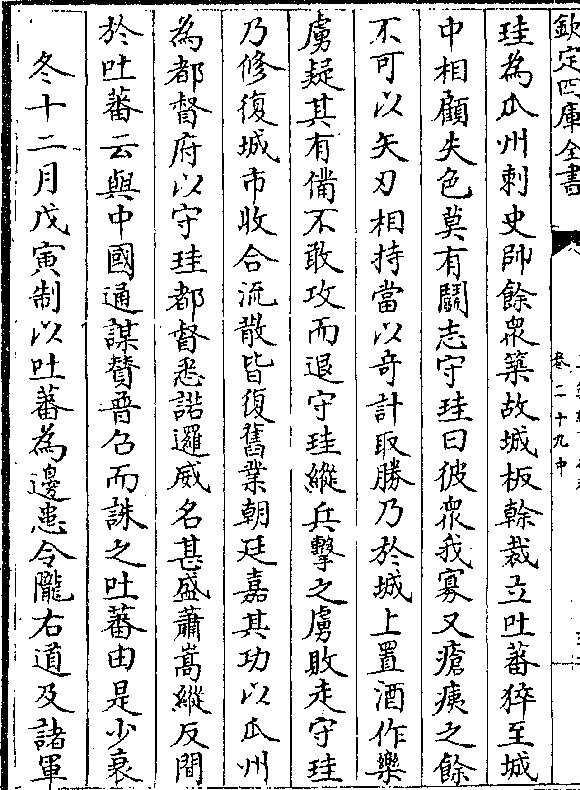 欽定四庫全書
卷二十九中
珪為瓜州刺史帥餘衆築故城板幹裁立吐蕃猝至城
中相顧失色莫有鬬志守珪曰彼衆我寡又瘡痍之餘
不可以矢刃相持當以奇計取勝乃於城上置酒作樂
虜疑其有備不敢攻而退守珪縱兵擊之虜敗走守珪
乃修復城市收合流散皆復舊業朝廷嘉其功以瓜州
為都督府以守珪都督悉諾邏威名甚盛蕭嵩縱反間
於吐蕃云與中國通謀贊普召而誅之吐蕃由是少衰
冬十二月戊寅制以吐蕃為邊患令隴右道及諸軍